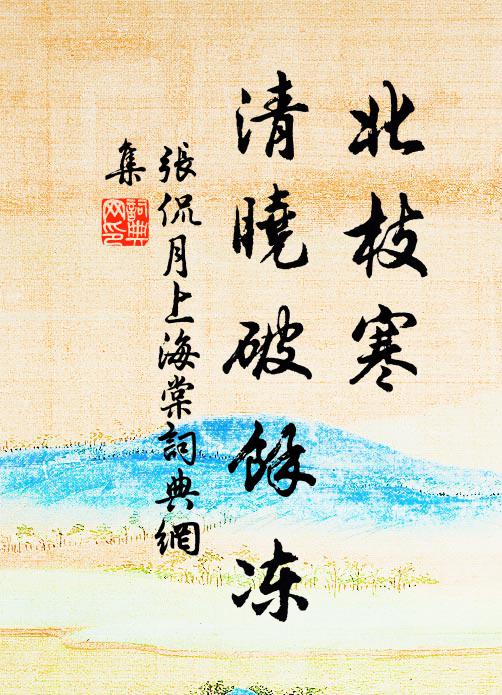 北枝寒
清曉破餘凍
張侃月上海棠詞典網
集
詞典
网印